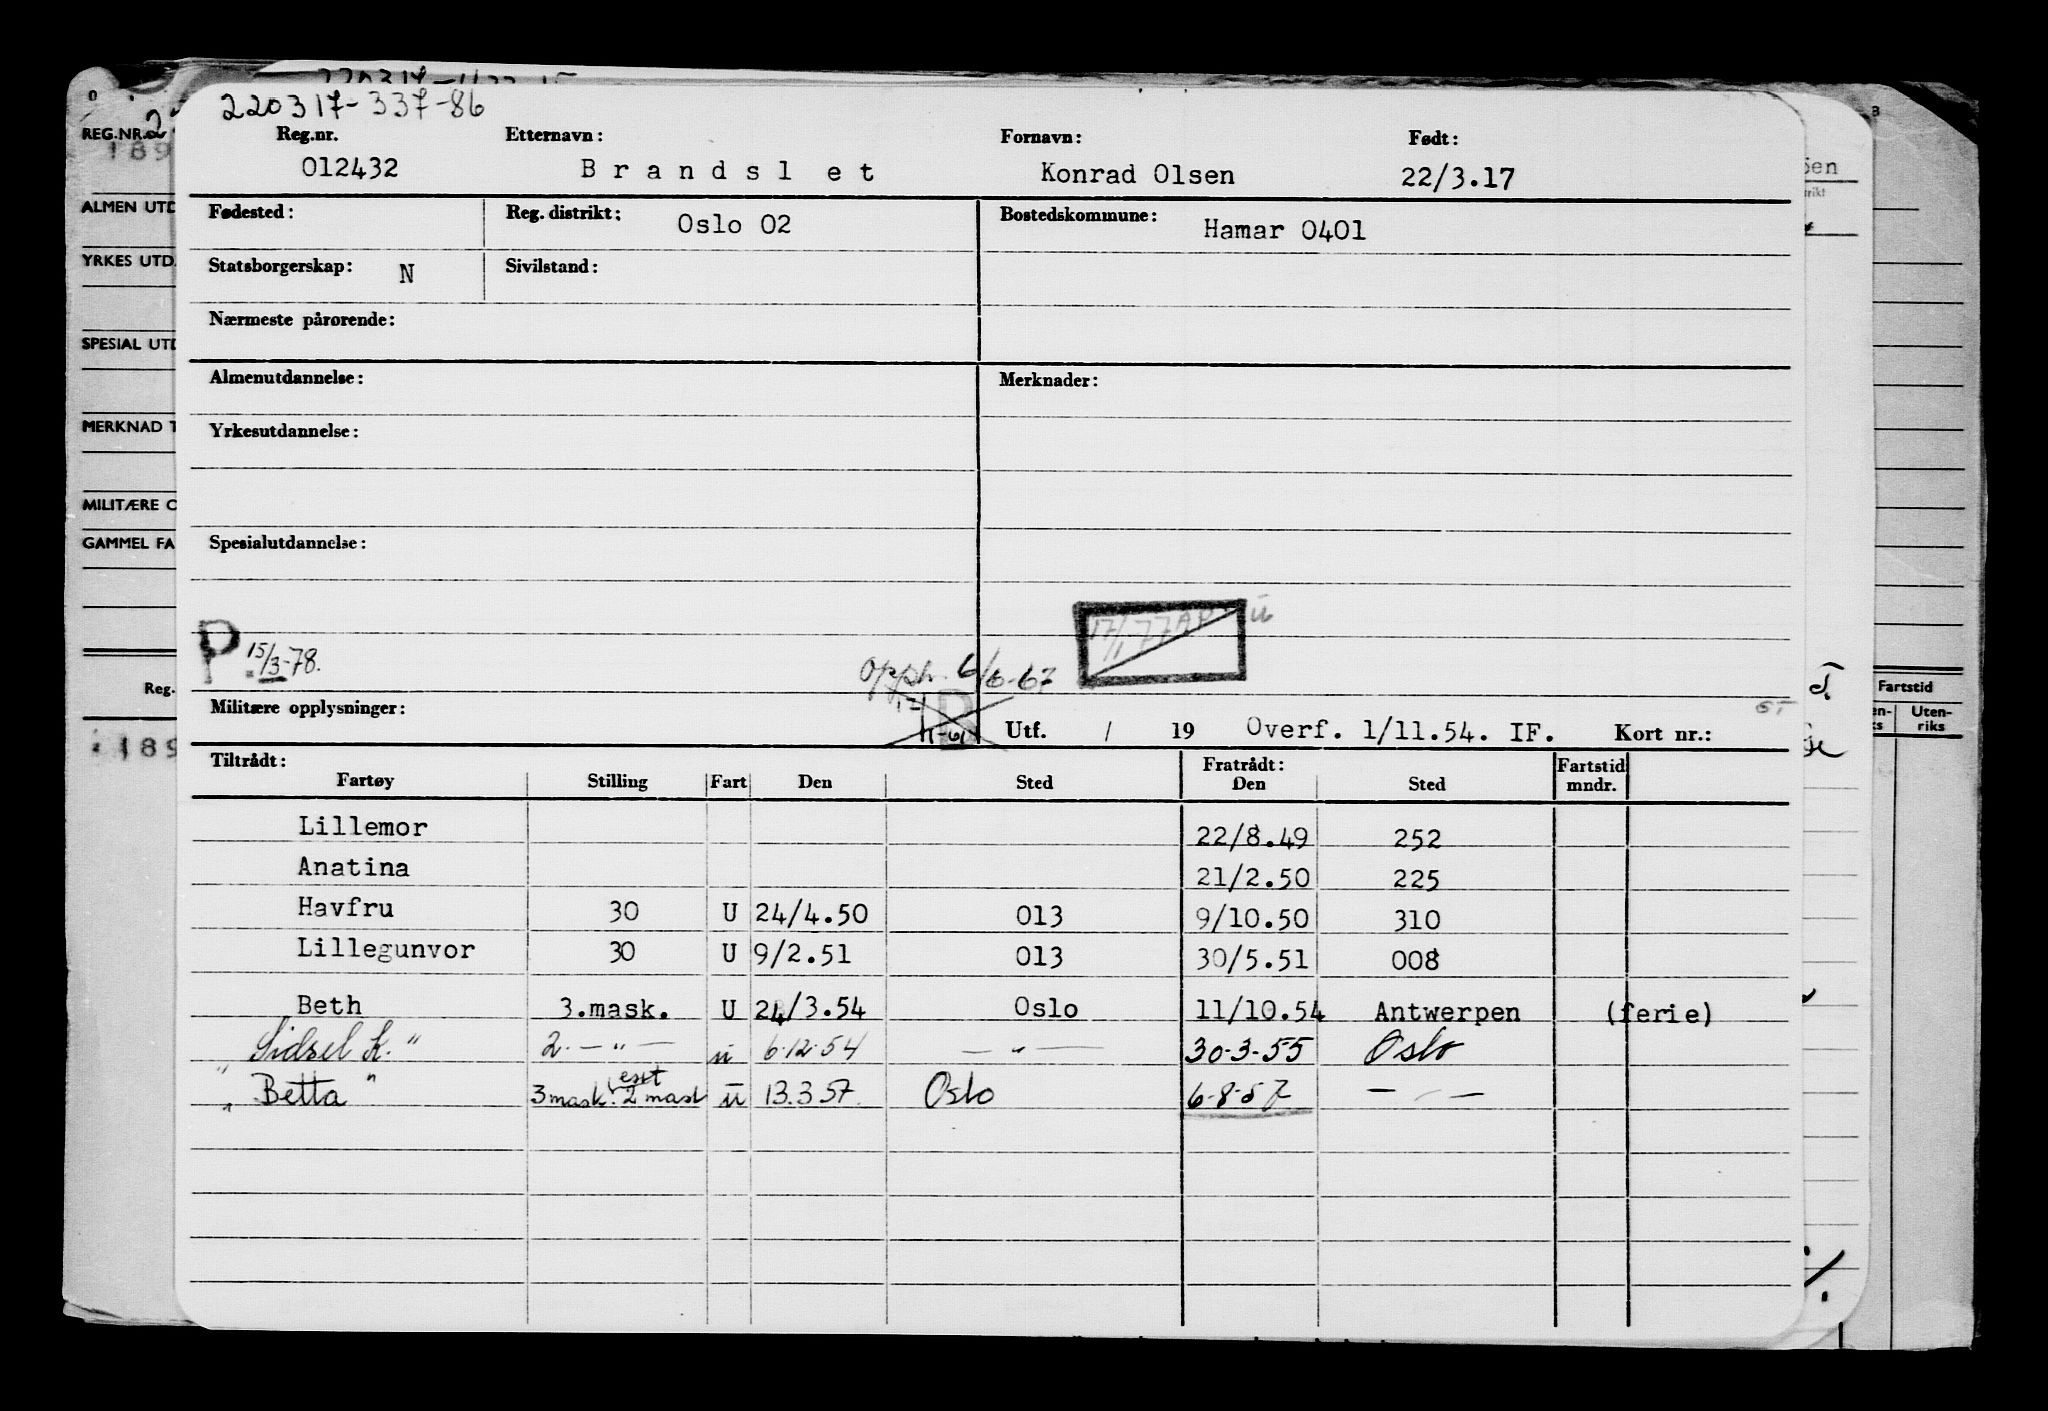 220317-337-86
Reg.nr. Etternavn: Fornavn: Født:
012432 Brandslet Konrad Olsen 22/3.17
Fødested: Reg. distrikt: Oslo 02 Bostedskommune: Hamar 0401
Statsborgerskap: N Sivilstand:
Nærmeste pårørende:
Almenutdannelse: Merknader:
Yrkesutdannelse:
Spesialutdannelse:
17/1 77 AP ü
P 15/3-78.
Opph. 6/6-67
Militære opplysninger: B Utf. / 19 Overf. 1/11.54. IF. Kort nr.:
Tiltrådt: Fratrådt: Fartstid
Fartøy Stilling Fart Den Sted Den Sted mndr.
Lillemor 22/8.49 252
Anatina 21/2.50 225
Havfru 30 U 24/4.50 013 9/10.50 310
Lillegunvor 30 U 9/2.51 013 30/5.51 008
Beth 3.mask. U 24/3.54 Oslo 11/10.54 Antwerpen (ferie)
"Sidsel K." 2. — " — ü 6.12.54 — " — 30-3-55 Oslo
"Betta" 3 mask. esst 2 mask ü 13.3.57. Oslo 6-8-57 — " —
REG.NR.
189
ALMEN UTD
YRKES UTD.
SPESIAL UTD
MERKNAD T
MILITÆRE O
GAMMEL FA
Reg.
189
Fartstid
Uten-
riks